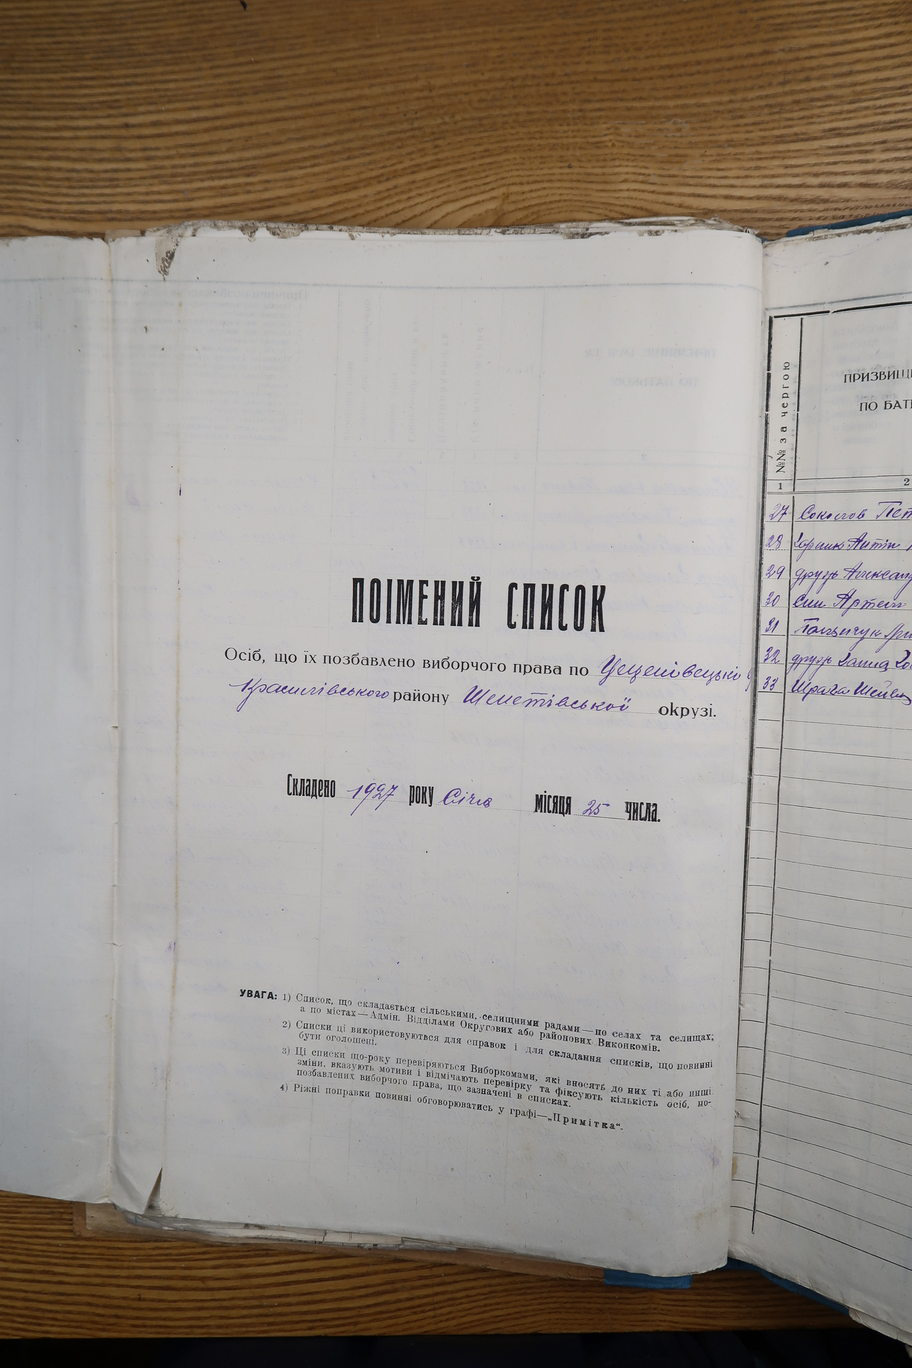 ПОІМЕНИЙ СПИСОК
Осіб, що їх позбавлено виборчого права по
Красилівського району Шепетівської окрузі.
Складено 1927 року Січ місяця 25 числа.
УВАГА: 1) Список, що складається сільськими, селищними радами—по селах та селищах,
а по містах—Адмін. Відділами Округових або районових Виконкомів.
2) Списки ці використовуютвся для справок і для складання списків, що повинні
бути оголошені.
3) Ці списки що-року перевіряються Виборкомами, які вносять до них ті або инші
зміни, вказують мотиви і відмічають перевірку та фіксують кількість осіб, по-
позбавлених виборчого права, що зазначені в списках.
4) Ріжні поправки повинні обговорюватись у графі—„Примітка“.
№№ за чергою
ПРИЗВИЩ
ПО БАТЬ
1 2
27 Соколов Пет
28 Антін
29 друж Александ
30 син Артем
31
32 друж Ганна
33